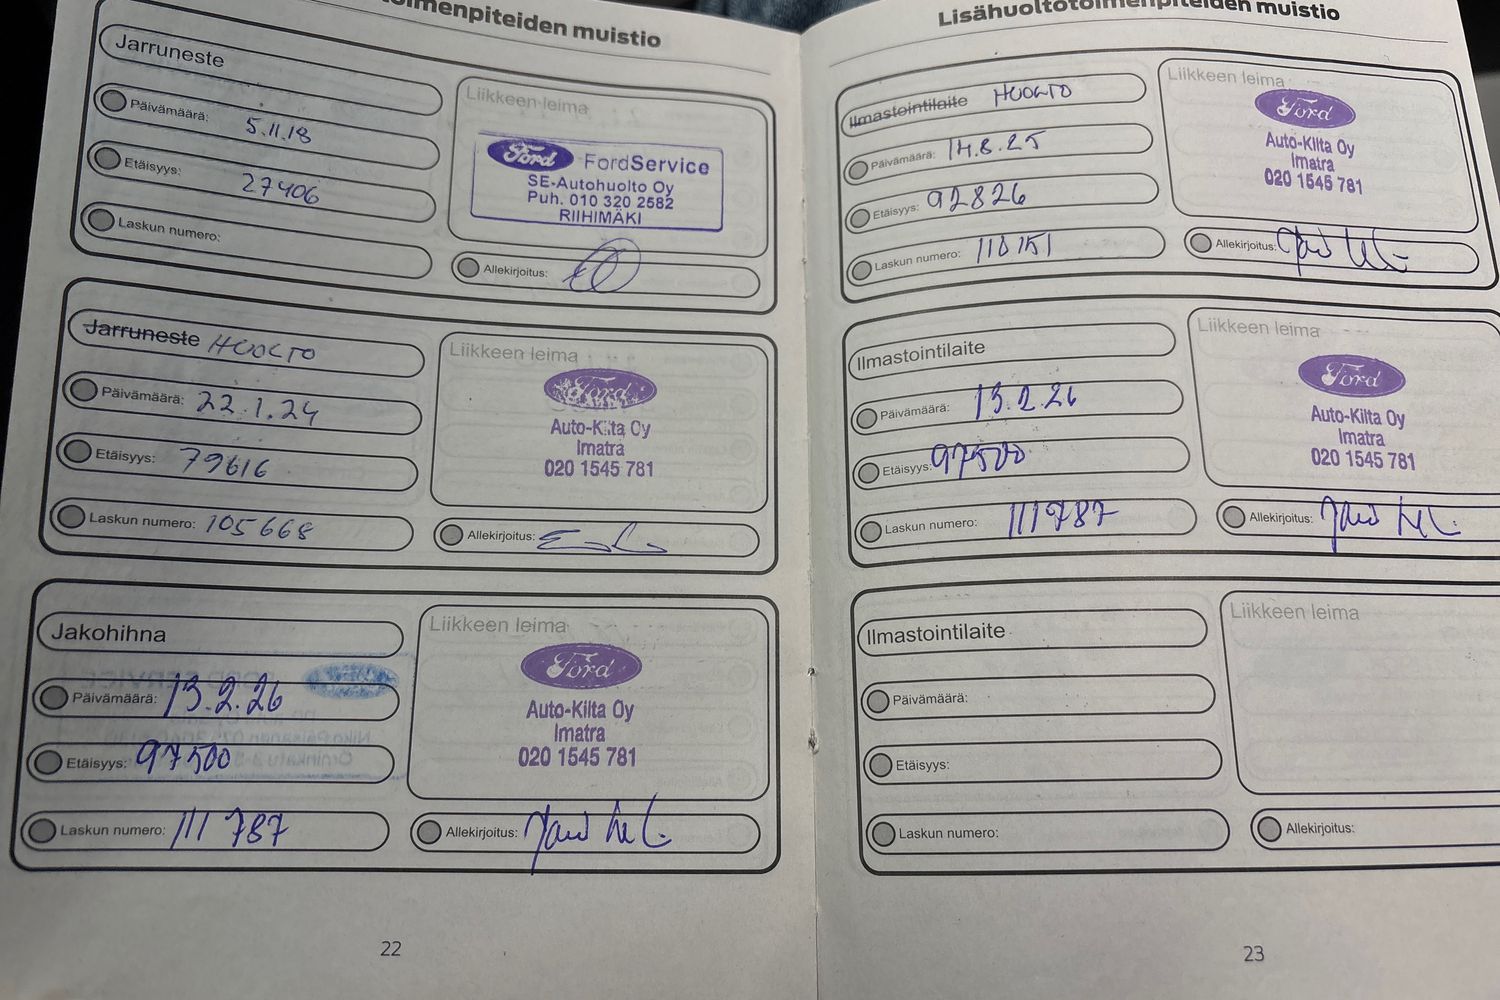 toimenpiteiden muistio
Jarruneste
Päivämäärä: 5.11.18
Etäisyys: 27406
Laskun numero:
Liikkeen leima
Ford FordService
SE-Autohuolto Oy
Puh. 010 320 2582
RIIHIMÄKI
Allekirjoitus:
Jarruneste HUOLTO
Päivämäärä: 22.1.24
Etäisyys: 79616
Laskun numero: 105668
Liikkeen leima
Ford
Auto-Kilta Oy
Imatra
020 1545 781
Allekirjoitus:
Jakohihna
Päivämäärä: 13.2.26
Etäisyys: 97500
Laskun numero: 111787
Liikkeen leima
Ford
Auto-Kilta Oy
Imatra
020 1545 781
Allekirjoitus:
22
Lisähuoltotoimenpiteiden muistio
Ilmastointilaite HUOLTO
Päivämäärä: 14.8.25
Etäisyys: 92826
Laskun numero: 110151
Liikkeen leima
Ford
Auto-Kilta Oy
Imatra
020 1545 781
Allekirjoitus:
Ilmastointilaite
Päivämäärä: 13.2.26
Etäisyys: 97500
Laskun numero: 111787
Liikkeen leima
Ford
Auto-Kilta Oy
Imatra
020 1545 781
Allekirjoitus:
Ilmastointilaite
Päivämäärä:
Etäisyys:
Laskun numero:
Liikkeen leima
Allekirjoitus:
23